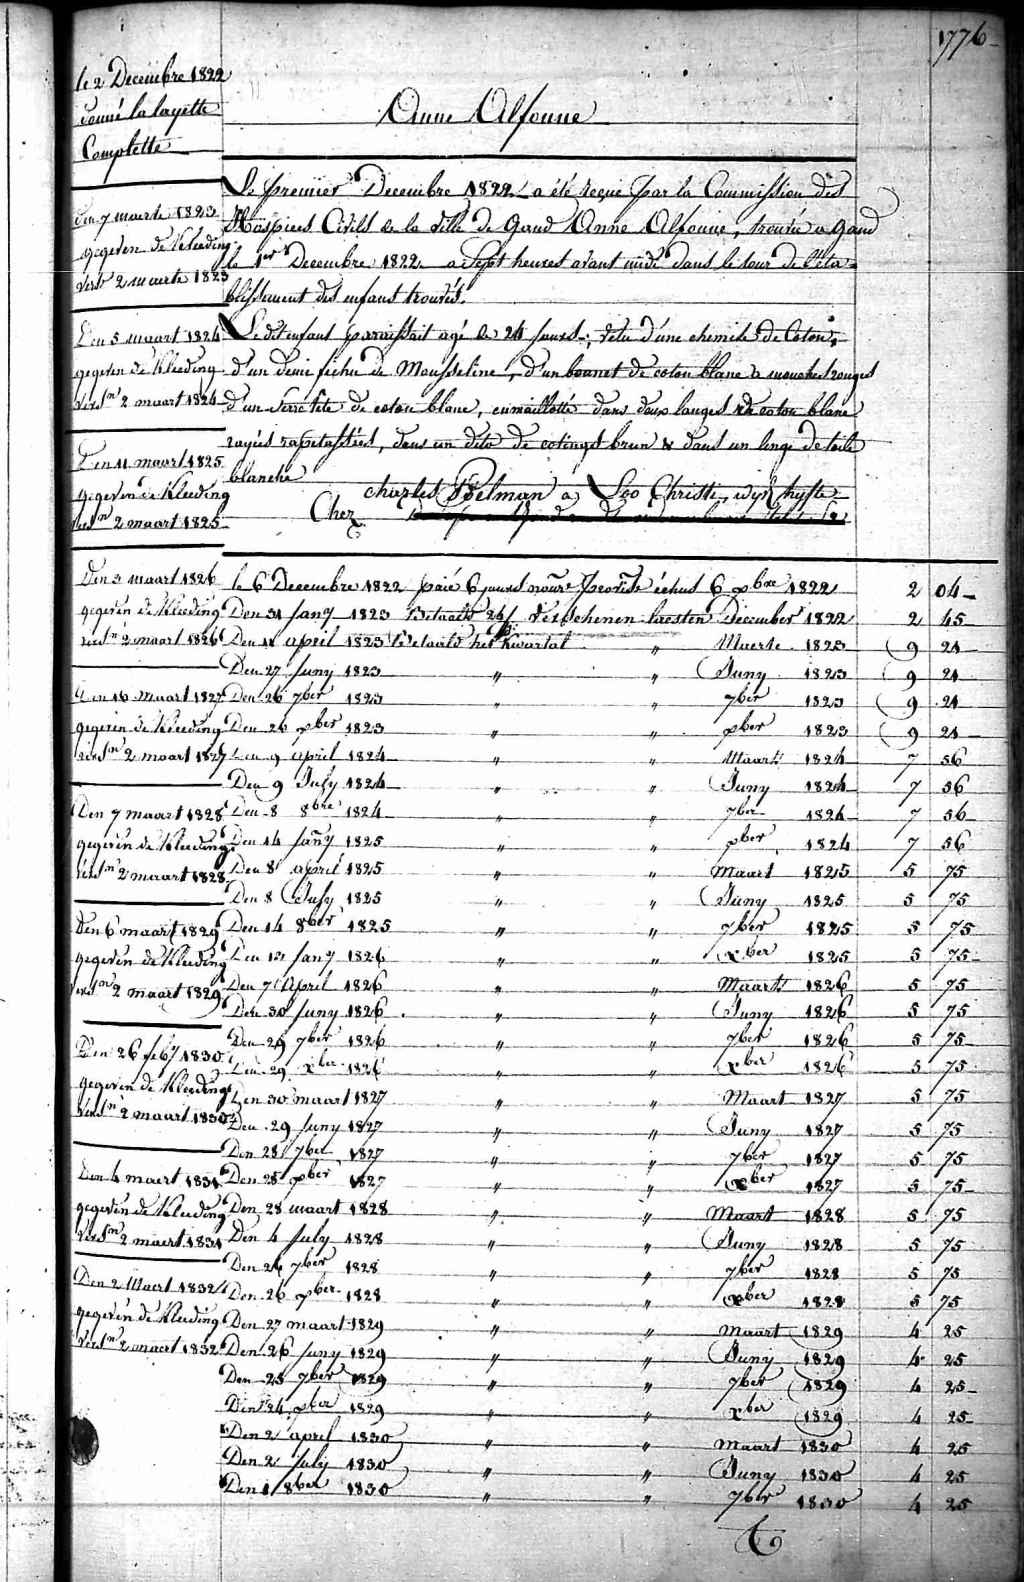 1776
le 2 Decembre 1822
donné la layette
Complette
Den 7 maerte 1823
gegeven de Kleeding
vers 2 maerte 1823
Den 5 maart 1824
gegeven de Kleeding
versn 2 maart 1824
Den 11 maart 1825
gegeven de Kleeding
versn 2 maart 1825
Den 3 maart 1826
gegeven de Kleeding
versn 2 maart 1826
Den 16 maart 1827
gegeven de Kleeding
versn 2 maart 1827
Den 7 maart 1828
gegeven de Kleeding
versn 2 maart 1828
Den 6 maart 1829
gegeven de Kleeding
versn 2 maart 1829
Den 26 feby 1830
gegeven de Kleeding
versn 2 maart 1830
Den 4 maert 1831
gegeven de Kleeding
versn 2 maert 1831
Den 2 Maert 1832
gegeven de Kleeding
versn 2 maert 1832
Anne Alfonne
Le premier Decembre 1822 a été reçue par la Commission des
Hospices Civils de la ville de Gand Anne Alfonne, trouvée a Gand
le 1er Decembre 1822 a Sept heures avant midi dans le tour de l'éta-
blissement des enfans trouvés.
Le dit enfant paraissait agé de 24 jours, vetu d'une chemise de Coton,
d'un demi fichu de Mousseline, d'un bonnet de coton blanc a mouches rouges
d'un Serre tête de coton blanc, enmaillotté dans deux langes de coton blanc
rayées rapetassées, dans un dito de brun & dans un linge de toile
blanche
charles Poelman à Loo Christi, wyk hyfte
Chez
le 6 Decembre 1822 payé 6 jours nourre provisre échus 6 xbre 1822 2 04
Den 31 Jany 1823 Betaald 26/ Verschenen lresten December 1822 2 45
Den 11 april 1823 Betaald het Kwartal " Maerte 1823 9 24
Den 27 Juny 1823 " " Juny 1823 9 24
Den 26 7ber 1823 " " 7ber 1823 9 24
Den 26 xber 1823 " " xber 1823 9 24
Den 9 april 1824 " " Maart 1824 7 56
Den 9 July 1824 " " Juny 1824 7 56
Den 8 8bre 1824 " " 7ber 1824 7 56
Den 14 Jany 1825 " " xber 1824 7 56
Den 8 april 1825 " " Maart 1825 5 75
Den 8 July 1825 " " Juny 1825 5 75
Den 14 8ber 1825 " " 7ber 1825 5 75
Den 12 Jany 1826 " " xber 1825 5 75
Den 7 April 1826 " " Maart 1826 5 75
Den 30 Juny 1826 " " Juny 1826 5 75
Den 29 7ber 1826 " " 7ber 1826 5 75
Den 29 xber 1826 " " xber 1826 5 75
Den 30 maart 1827 " " Maart 1827 5 75
Den 29 Juny 1827 " " Juny 1827 5 75
Den 28 7ber 1827 " " 7ber 1827 5 75
Den 28 xber 1827 " " xber 1827 5 75
Den 28 maart 1828 " " Maart 1828 5 75
Den 4 July 1828 " " Juny 1828 5 75
Den 26 7ber 1828 " " 7ber 1828 5 75
Den 26 xber 1828 " " xber 1828 5 75
Den 27 maart 1829 " " maart 1829 4 25
Den 26 Juny 1829 " " Juny 1829 4 25
Den 25 7ber 1829 " " 7ber 1829 4 25
Den 24 xber 1829 " " xber 1829 4 25
Den 2 april 1830 " " maart 1830 4 25
Den 2 July 1830 " " Juny 1830 4 25
Den 1 8ber 1830 " " 7ber 1830 4 25